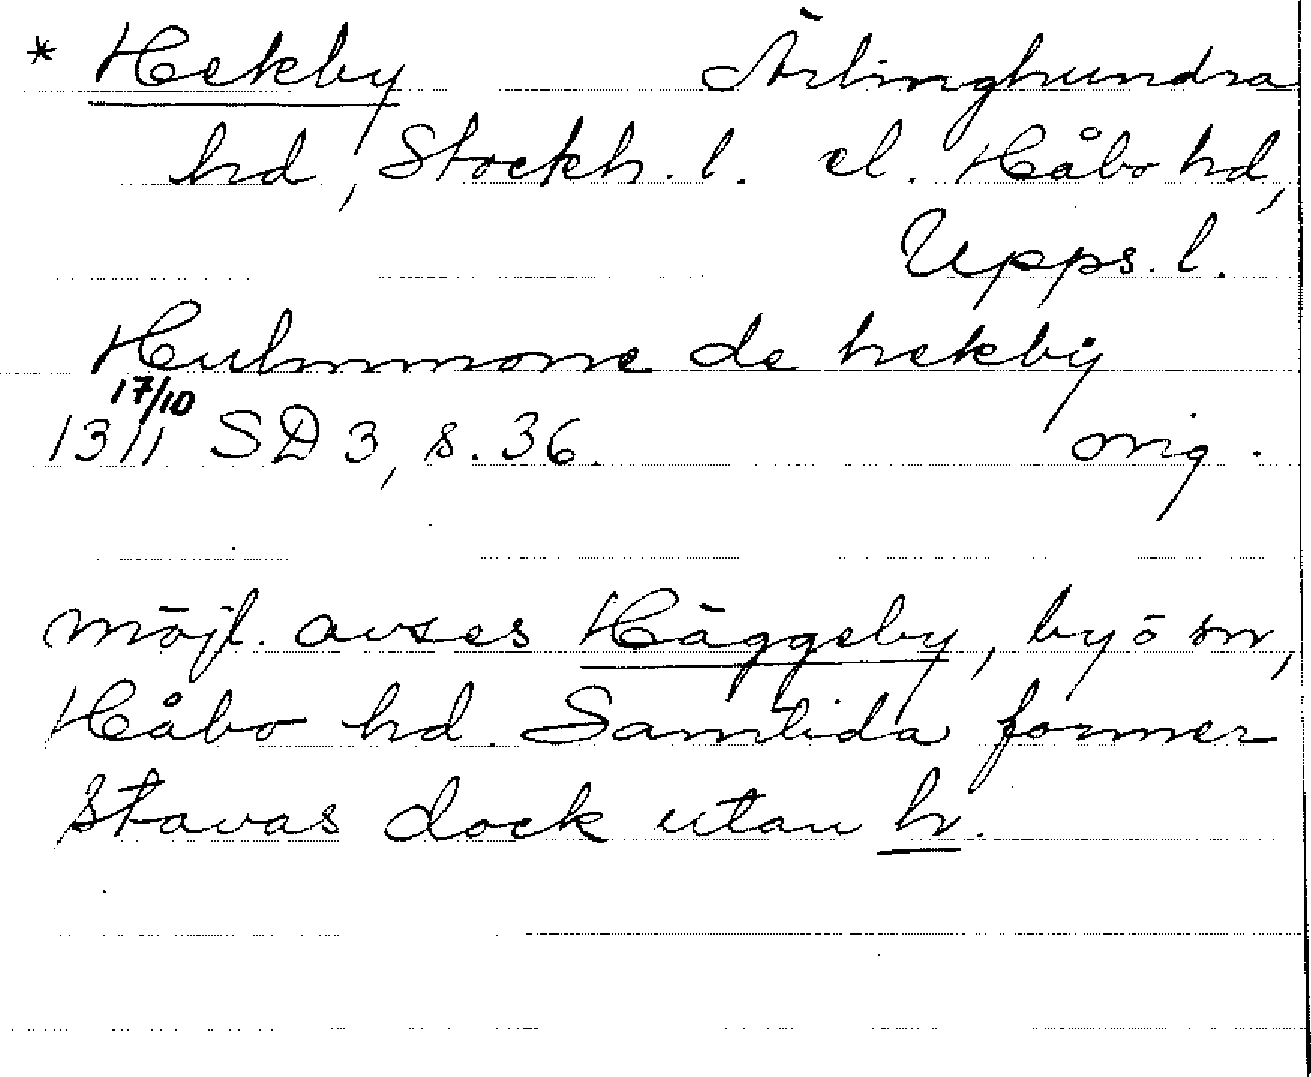 * Hekby Ärlinghundra
hd, Stockh. l. el. Håbo hd,
Upps. l.
Hulmmone de hekbÿ
17/10
1311 SD 3, s. 36. orig.
möjl. avses Häggeby, by o sn,
Håbo hd. Samtida former
stavas dock utan h.